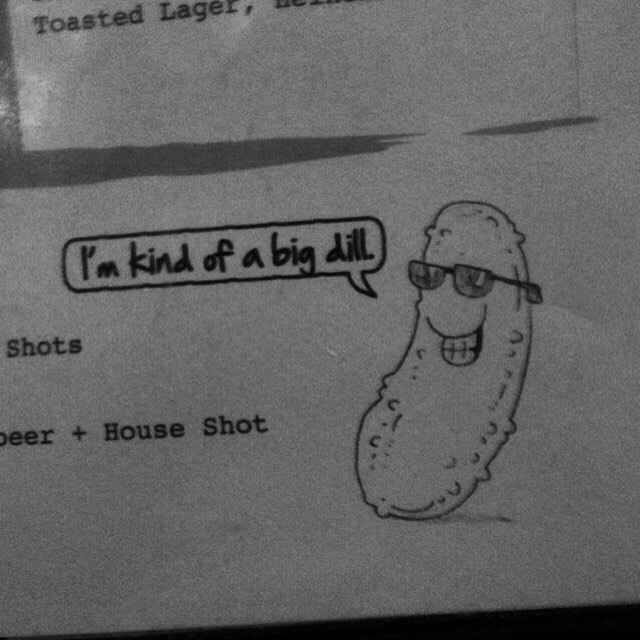 Toasted Lager,
I'm kind of a big dill.
Shots
beer + House Shot